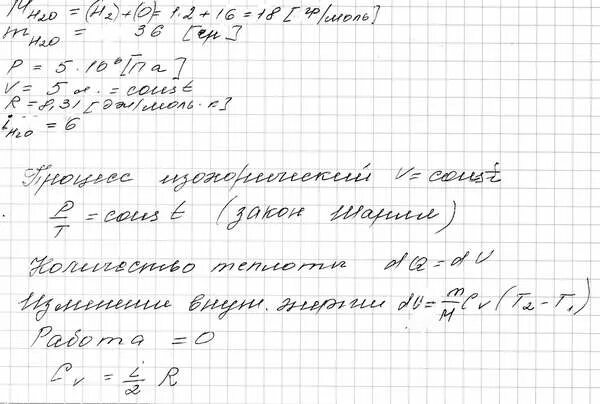 M H2O = (H2)+(O)= 1.2 + 16 = 18 [гр/моль]
m H2O = 36 [гр]
P = 5 · 10⁶ [Па]
V = 5 л. = const
R = 8,31 [дж/моль·к]
i H2O = 6
Процесс изохорический V = const
P/T = const (закон Шарля)
Количество теплоты dQ = dU
Изменение внутр. энергии dU = m/M Cv (T2 - T1)
Работа = 0
Cv = i/2 R